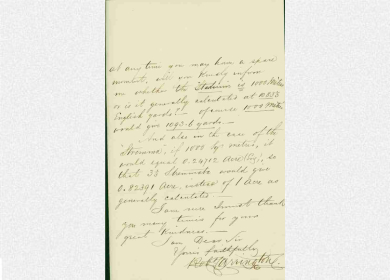 at any time you may have a spare
moment, will you kindly inform
me whether the Stadium is 1000 Metres
or is it generally calculated at 10.833
English yards? — of course 1000 Metres
would give 1093.6 yards —
And also in the case of the
Stremma, if 1000 sq. metres, it
would equal 0.24712 Acre, so
that 33 Stremmata would give
0.82391 Acre instead of 1 Acre as
generally calculated
I am sure I must thank
you many times for your
great kindness. —
I am Dear Sir
Yours faithfully